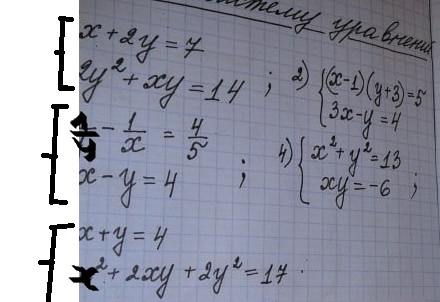 систему уравнений
x + 2y = 7
2y² + xy = 14 ;
2) { (x-1)(y+3) = 5
3x - y = 4
1/y - 1/x = 4/5
x - y = 4 ;
4) { x² + y² = 13
xy = -6 ;
x + y = 4
x² + 2xy + 2y² = 17 .